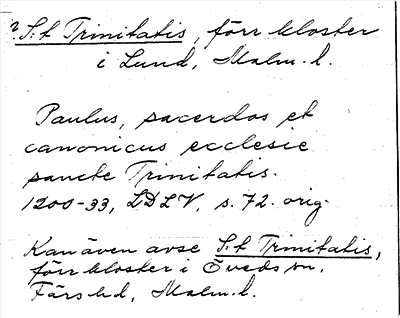 ? S:t Trinitatis, förr kloster
i Lund, Malm. l.
Paulus, sacerdos et
canonicus ecclesie
sancte Trinitatis.
1200-33, LDLV, s. 72. orig.
Kan även avse S:t Trinitatis,
förr kloster i Öveds sn,
Färs hd, Malm. l.